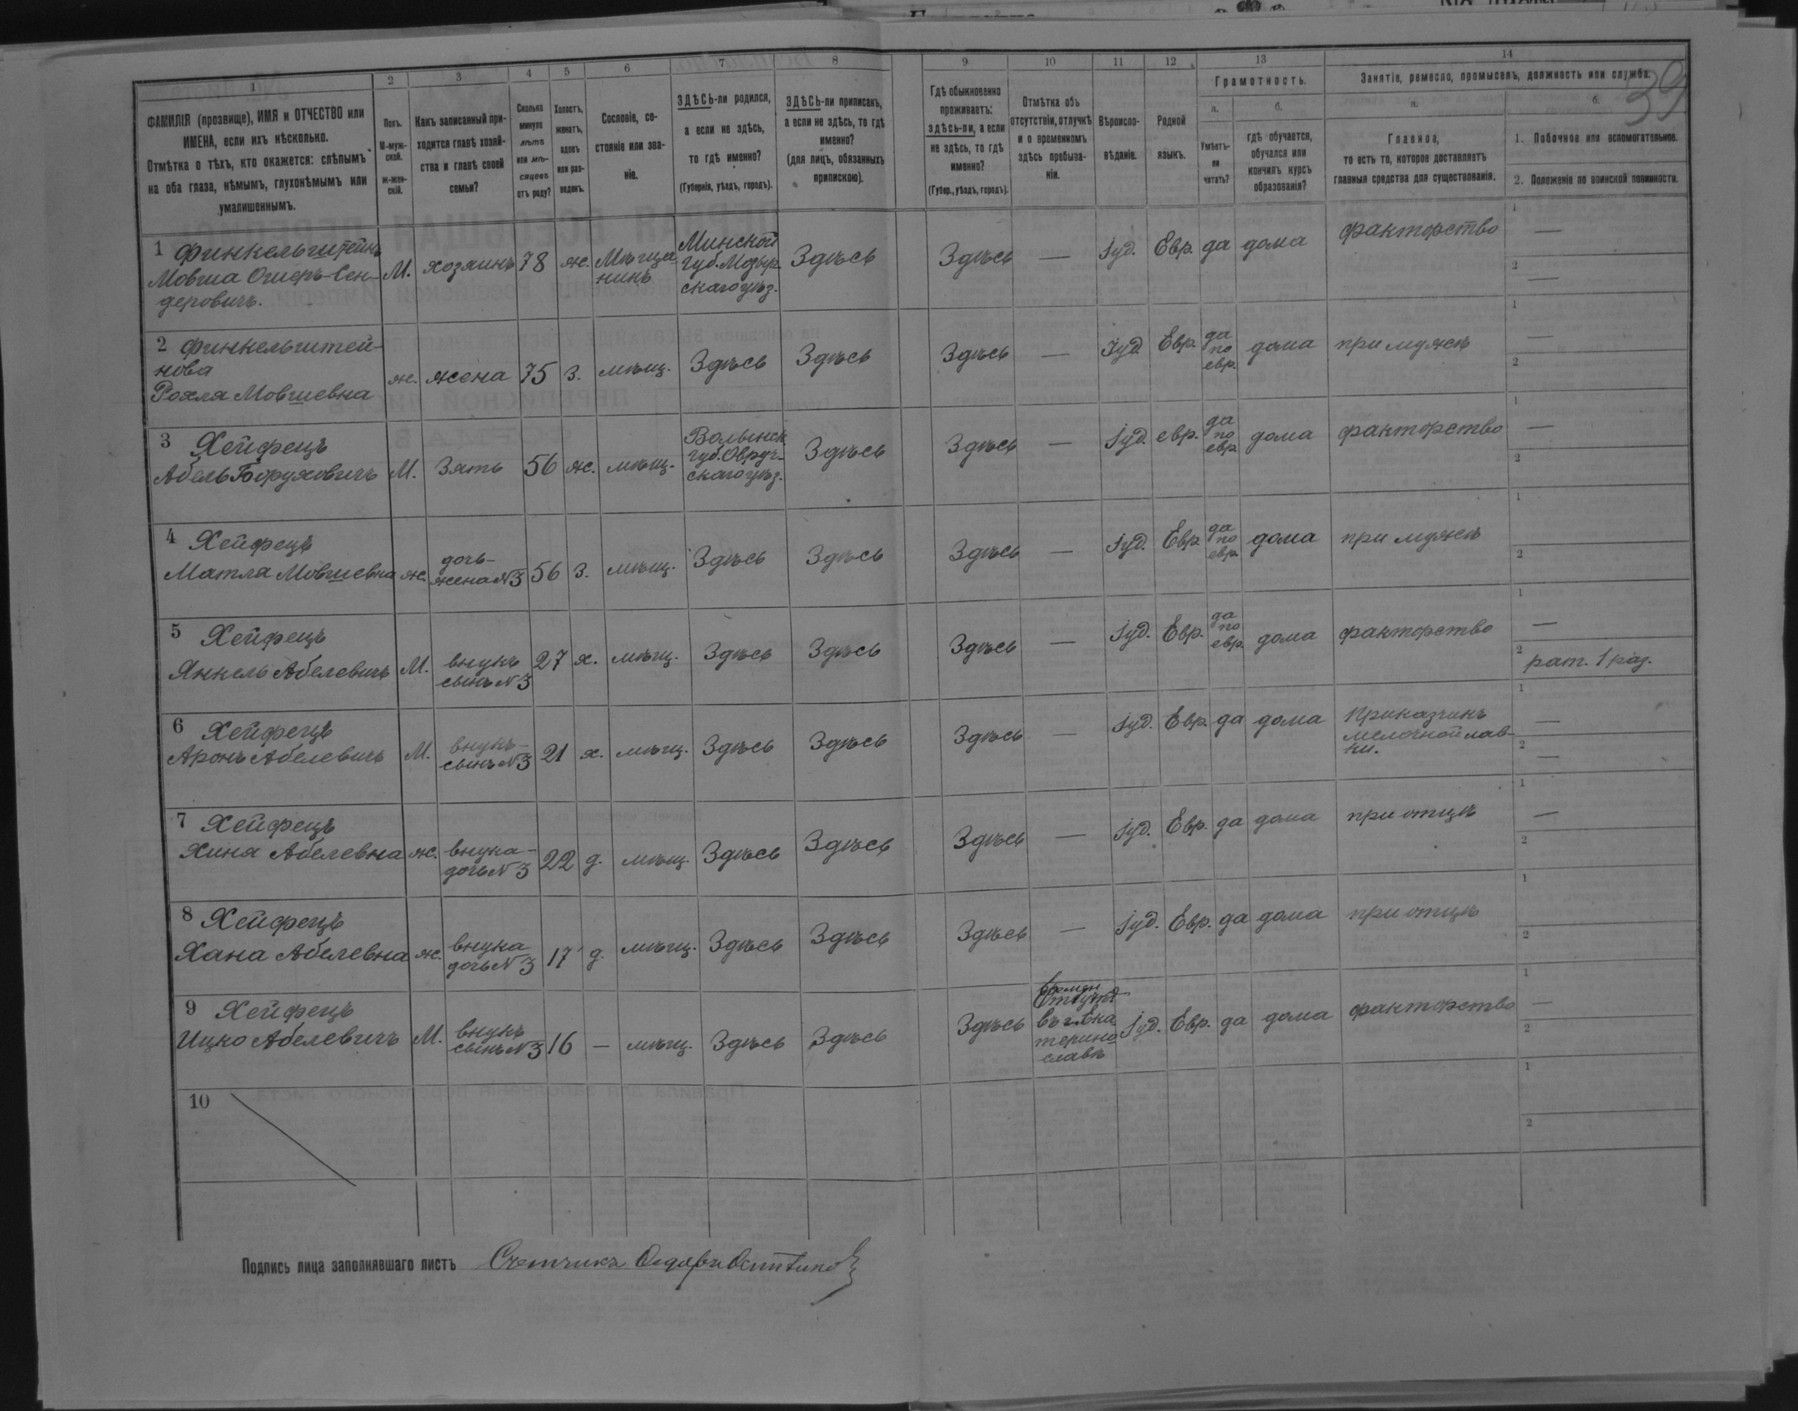 39
1 2 3 4 5 6 7 8 9 10 11 12 13 14
ФАМИЛІЯ (прозвище), ИМЯ и ОТЧЕСТВО или
ИМЕНА, если ихъ нѣсколько.
Отмѣтка о тѣхъ, кто окажется: слѣпымъ
на оба глаза, нѣмымъ, глухонѣмымъ или
умалишеннымъ.
Полъ.
М-муж-
ской.
Ж-жен-
скій.
Какъ записанный при-
ходится главѣ хозяй-
ства и главѣ своей
семьи?
Сколько
минуло
лѣтъ
или мѣ-
сяцевъ
отъ роду?
Холостъ,
женатъ,
вдовъ
или раз-
веденъ.
Сословіе, со-
стояніе или зва-
ніе.
ЗДѢСЬ-ли родился,
а если не здѣсь,
то гдѣ именно?
(Губернія, уѣздъ, городъ).
ЗДѢСЬ-ли приписанъ,
а если не здѣсь, то гдѣ
именно?
(для лицъ, обязанныхъ
припискою).
Гдѣ обыкновенно
проживаетъ:
здѣсь-ли, а если
не здѣсь, то гдѣ
именно?
(Губер., уѣздъ, городъ).
Отмѣтка объ
отсутствіи, отлучкѣ
и о временномъ
здѣсь пребыва-
ніи.
Вѣроиспо-
вѣданіе.
Родной
языкъ.
Грамотность.
а. б.
Умѣетъ-
ли
читать?
гдѣ обучается,
обучался или
кончилъ курсъ
образованія?
Занятія, ремесло, промыселъ, должность или служба.
а. б.
Главное,
то есть то, которое доставляетъ
главныя средства для существованія.
1. Побочное или вспомогательное.
2. Положеніе по воинской повинности.
1 Финкельштейнъ
Мовша Ошеръ-Сен-
деровичъ.
М. хозяинъ 78 ж. Мѣща
нинъ
Минской
губ. Мозыр
скаго уѣз.
Здѣсь Здѣсь — Іуд. Евр. да дома факторство
1 —
2 —
2 Финкельштей-
нова
Рохля Мовшевна
ж. жена 75 З. мѣщ. Здѣсь Здѣсь Здѣсь — Іуд Евр. да
по
евр.
дома при мужѣ
1 —
2
3 Хейфецъ
Абель Борухович М. Зять 56 ж. мѣщ.
Волынск
губ. Овруч-
скаго уѣз.
Здѣсь Здѣсь — Іуд. евр. да
по
евр
дома факторство
1 —
2
4 Хейфецъ
Матля Мовшевна ж. дочь-
жена №3 56 З. мѣщ. Здѣсь Здѣсь Здѣсь — Іуд. Евр да
по
евр.
дома при мужѣ
1
2
5 Хейфецъ
Янкель Абелевичъ М. внукъ
сынъ №3 27 х. мѣщ. Здѣсь Здѣсь Здѣсь — Іуд. Евр. да
по
евр.
дома факторство
1 —
2 рат. 1 раз.
6 Хейфецъ
Аронъ Абелевичъ М. внукъ-
сынъ №3 21 х. мѣщ. Здѣсь Здѣсь Здѣсь — Іуд. Евр. да дома Приказчикъ
мелочной лав-
ки.
1 —
2 —
7 Хейфецъ
Хиня Абелевна ж. внука-
дочь №3 22 д. мѣщ. Здѣсь Здѣсь Здѣсь — Іуд. Евр. да дома при отцѣ
1 —
2
8 Хейфецъ
Хана Абелевна ж. внука
дочь №3 17 д. мѣщ. Здѣсь Здѣсь Здѣсь — Іуд. Евр. да дома при отцѣ
1
2
9 Хейфецъ
Ицко Абелевичъ М. внукъ
сынъ №3 16 — мѣщ. Здѣсь Здѣсь Здѣсь
въ г. Ека
терино
славѣ
Іуд. Евр. да дома факторство
1 —
2
10
1
2
Подпись лица заполнявшаго листъ Счетчикъ